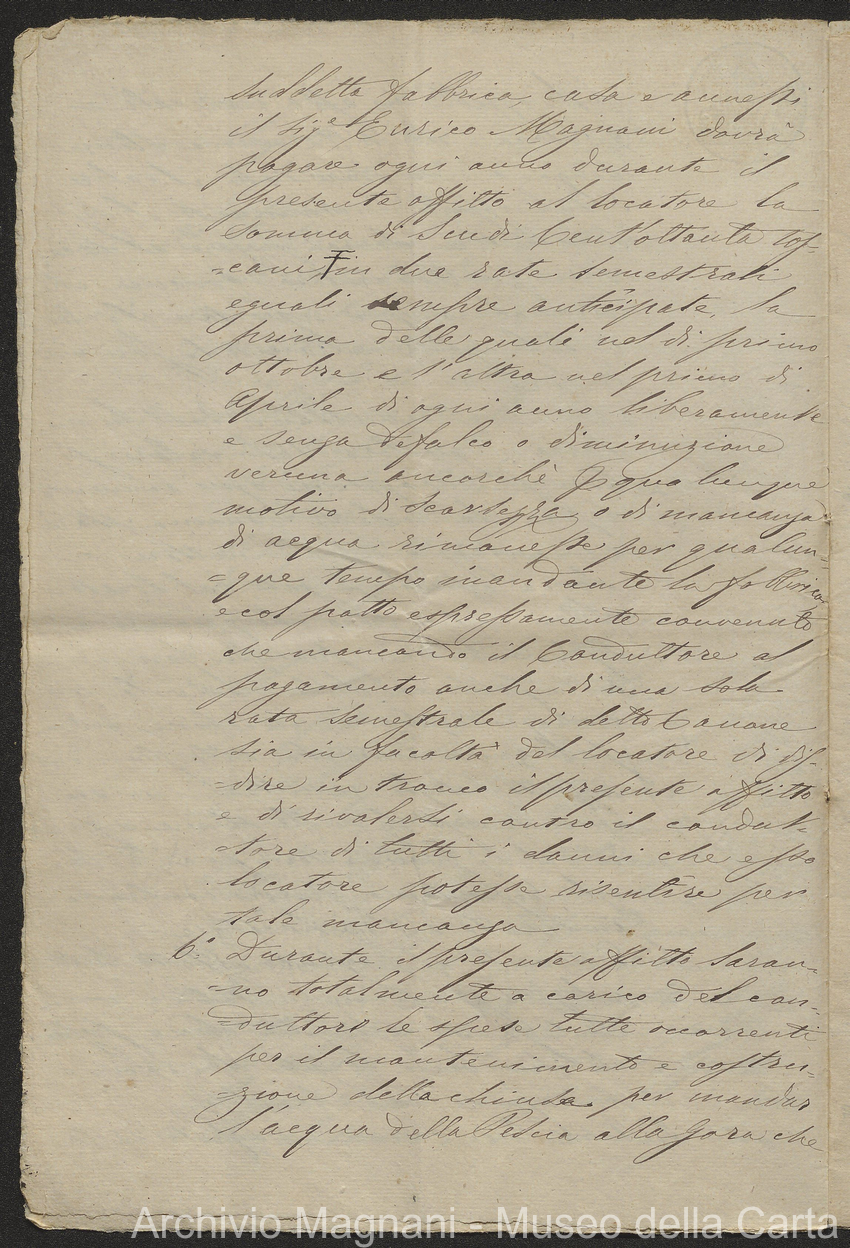 suddetta fabbrica, casa e annessi
il sig.e Enrico Magnani dovrà
pagare ogni anno durante il
presente affitto al locatore la
somma di Scudi Cent'ottanta tos-
=cani, in due rate semestrali
eguali sempre anticipate, la
prima delle quali nel dì primo
ottobre e l'altra nel primo di
Aprile di ogni anno liberamente
e senza defalco o diminuzione
veruna ancorchè p qualunque
motivo di scarsezza o di mancanza
di acqua rimanesse per qualun-
=que tempo inandante la fabbrica
e col patto espressamente convenuto
che mancando il Conduttore al
pagamento anche di una sola
rata semestrale di detto Canone
sia in facoltà del locatore di dis-
=dire in tronco il presente affitto
e di rivalersi contro il condut-
=tore di tutti i danni che esso
locatore potesse risentire per
tale mancanza
6.° Durante il presente affitto saran-
=no totalmente a carico del con-
=duttore le spese tutte occorrenti
per il mantenimento e costru-
=zione della chiusa per mandar
l'acqua della Pescia alla Gora che
Archivio Magnani - Museo della Carta